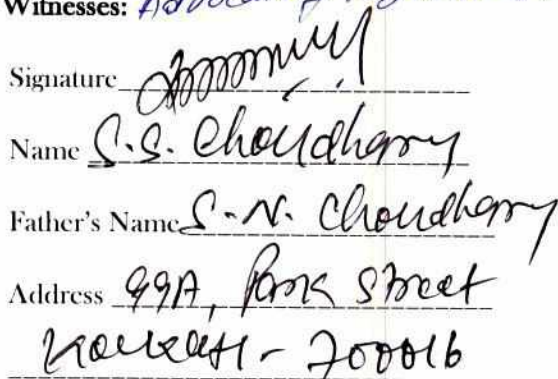 Witnesses:
Signature
Name S.S. Choudhary
Father's Name S.N. Choudhary
Address 99A, Park Street
Kolkata - 700016